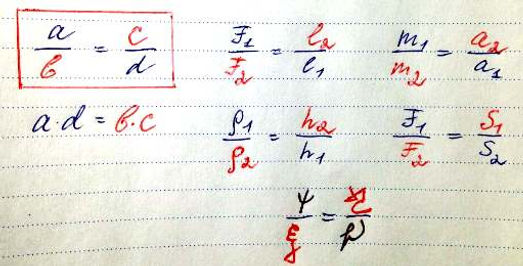 a/b = c/d   F₁/F₂ = l₂/l₁   m₁/m₂ = a₂/a₁
a·d = b·c   ρ₁/ρ₂ = h₂/h₁   F₁/F₂ = S₁/S₂